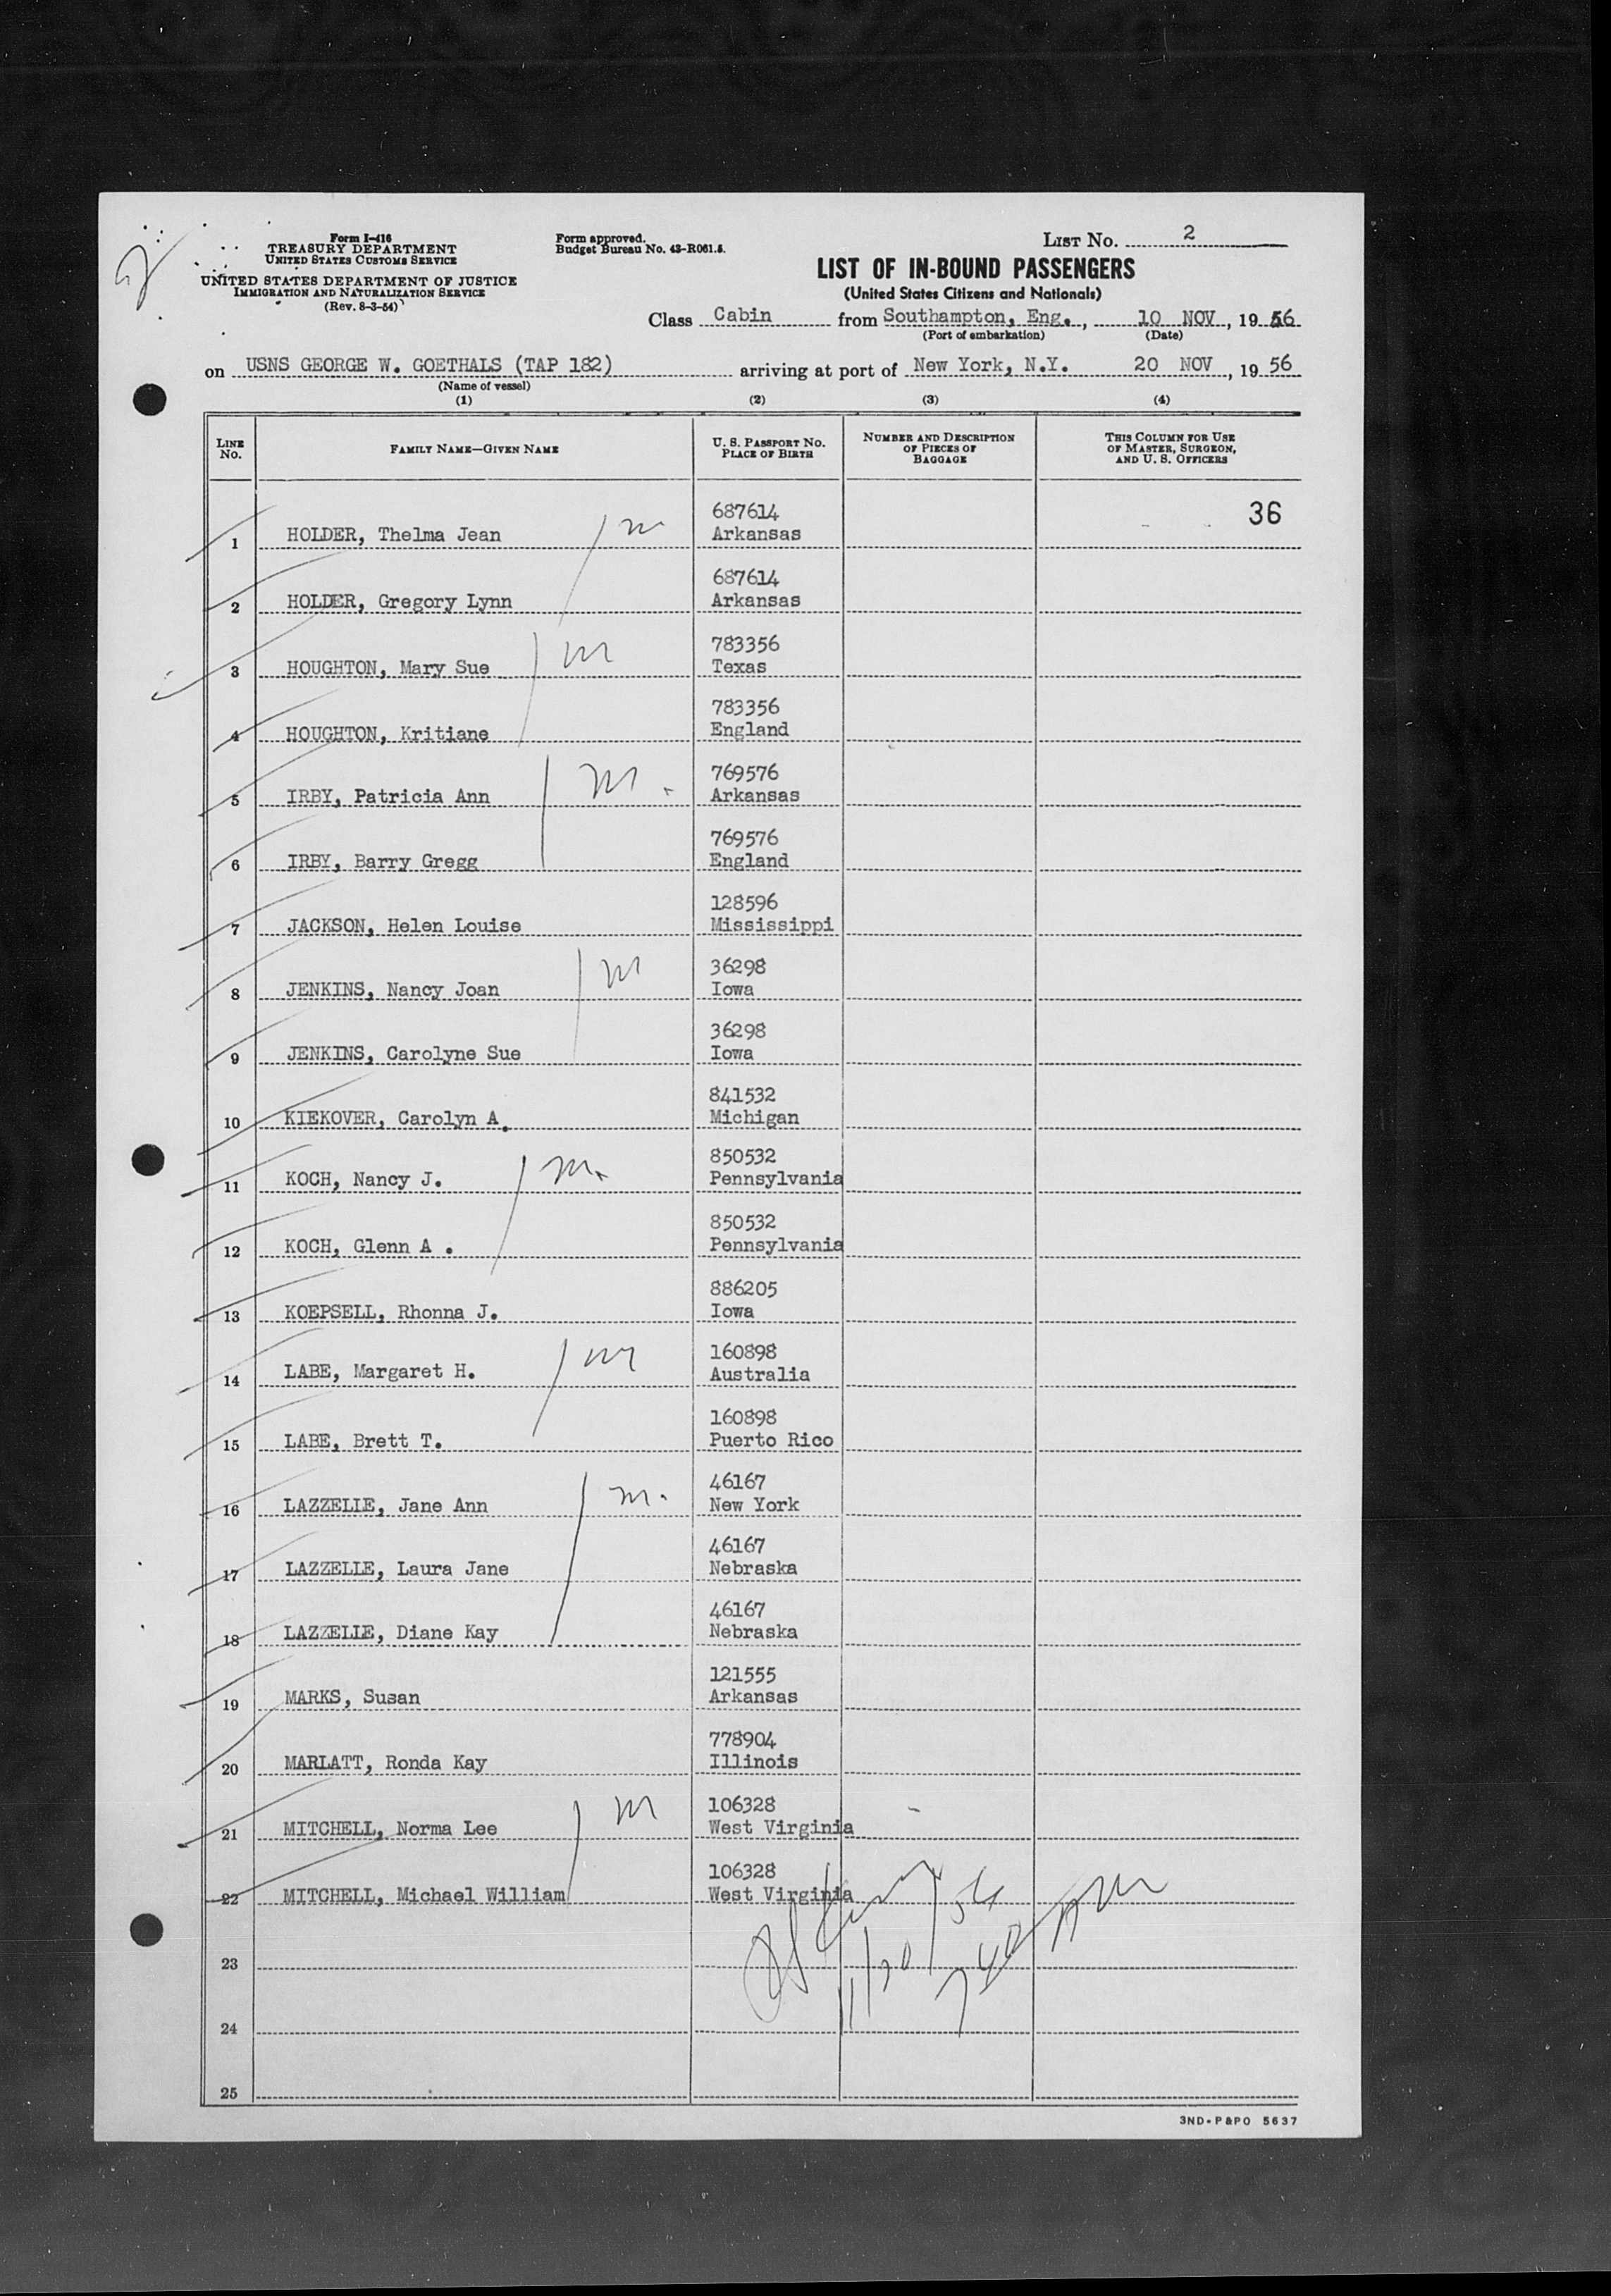 Form I-416
TREASURY DEPARTMENT
UNITED STATES CUSTOMS SERVICE
UNITED STATES DEPARTMENT OF JUSTICE
IMMIGRATION AND NATURALIZATION SERVICE
(Rev. 8-3-54)
Form approved.
Budget Bureau No. 43-R061.5.
LIST No. 2
LIST OF IN-BOUND PASSENGERS
(United States Citizens and Nationals)
Class Cabin from Southampton, Eng., 10 NOV, 19 56
(Port of embarkation) (Date)
on USNS GEORGE W. GOETHALS (TAP 182) arriving at port of New York, N.Y. 20 NOV, 19 56
(Name of vessel)
(1) (2) (3) (4)
LINE No. FAMILY NAME—GIVEN NAME U. S. PASSPORT No. PLACE OF BIRTH NUMBER AND DESCRIPTION OF PIECES OF BAGGAGE THIS COLUMN FOR USE OF MASTER, SURGEON, AND U. S. OFFICERS
36
687614
1 HOLDER, Thelma Jean m Arkansas
687614
2 HOLDER, Gregory Lynn Arkansas
783356
3 HOUGHTON, Mary Sue m Texas
783356
4 HOUGHTON, Kritiane England
769576
5 IRBY, Patricia Ann m. Arkansas
769576
6 IRBY, Barry Gregg England
128596
7 JACKSON, Helen Louise Mississippi
36298
8 JENKINS, Nancy Joan m Iowa
36298
9 JENKINS, Carolyne Sue Iowa
841532
10 KIEKOVER, Carolyn A. Michigan
850532
11 KOCH, Nancy J. m. Pennsylvania
850532
12 KOCH, Glenn A . Pennsylvania
886205
13 KOEPSELL, Rhonna J. Iowa
160898
14 LABE, Margaret H. m Australia
160898
15 LABE, Brett T. Puerto Rico
46167
16 LAZZELLE, Jane Ann m. New York
46167
17 LAZZELLE, Laura Jane Nebraska
46167
18 LAZZELLE, Diane Kay Nebraska
121555
19 MARKS, Susan Arkansas
778904
20 MARLATT, Ronda Kay Illinois
106328
21 MITCHELL, Norma Lee m West Virginia
106328
22 MITCHELL, Michael William West Virginia
11/20/56
23
24
25
3ND-P&PO 5637